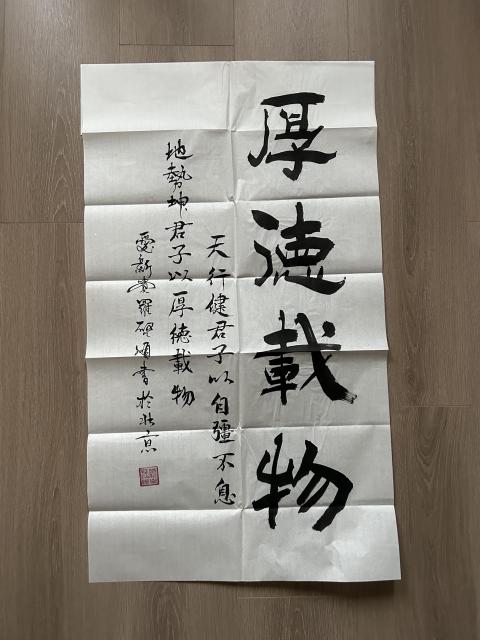 厚徳載物
天行健君子以自彊不息
地勢坤君子以厚徳載物
愛新覺羅 書於北京